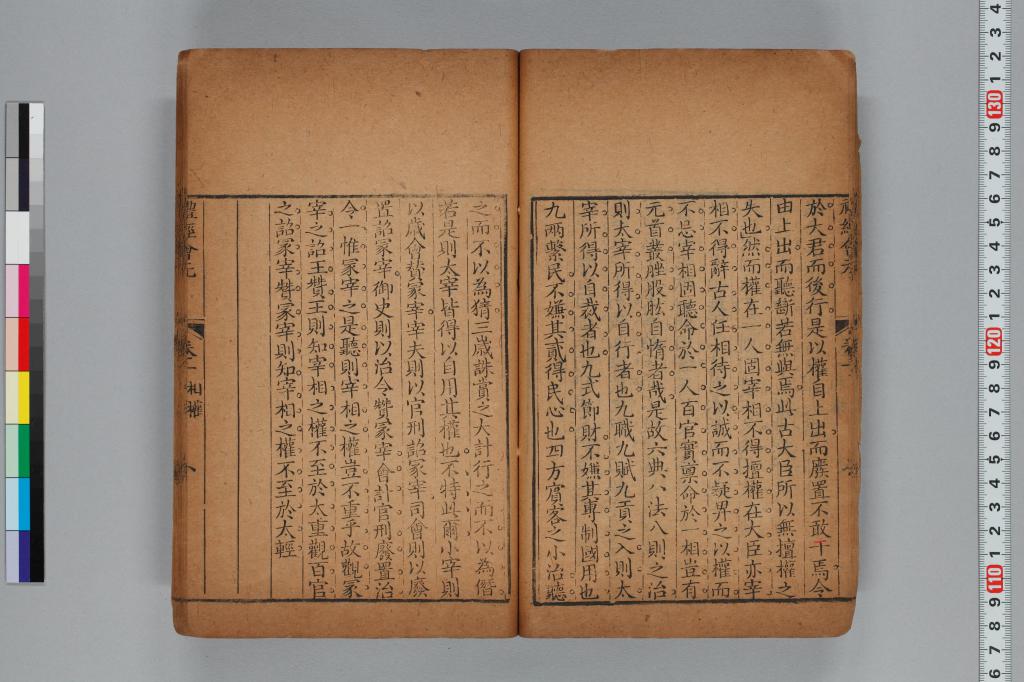 於大君而後行是以權自上出而廢置不敢干焉令
由上出而聽斷若無與焉此古大臣所以無擅權之
失也然而權在一人固宰相不得擅權在大臣亦宰
相不得辭古人任相待之以誠而不疑畀之以權而
不忌宰相固聽命於一人百官實稟命於一相豈有
元首叢脞股肱自惰者哉是故六典八法八則之治
則太宰所得以自行者也九職九賦九貢之入則太
宰所得以自裁者也九式節財不嫌其專制國用也
九兩繫民不嫌其貳得民心也四方賓客之小治聽
之而不以為猜三歲誅賞之大計行之而不以為僭
若是則太宰皆得以自用其權也不特此爾小宰則
以歲會贊冢宰宰夫則以官刑詔冢宰司會則以廢
置詔冢宰御史則以治令贊冢宰會計官刑廢置治
令一惟冢宰之是聽則宰相之權豈不重乎故觀冢
宰之詔王贊王則知宰相之權不至於太重觀百官
之詔冢宰贊冢宰則知宰相之權不至於太輕
禮經會元
卷一
相權